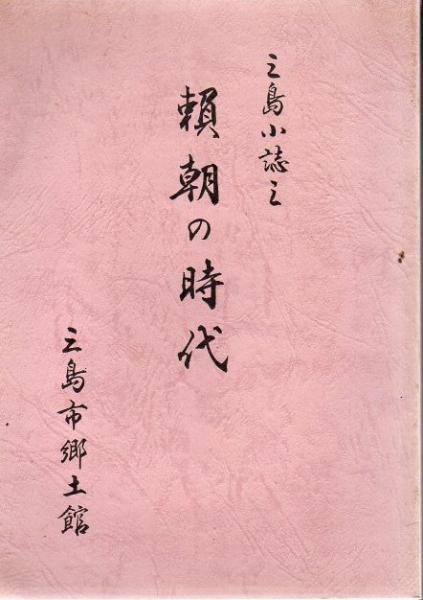 三島小誌三
頼朝の時代
三島市郷土館